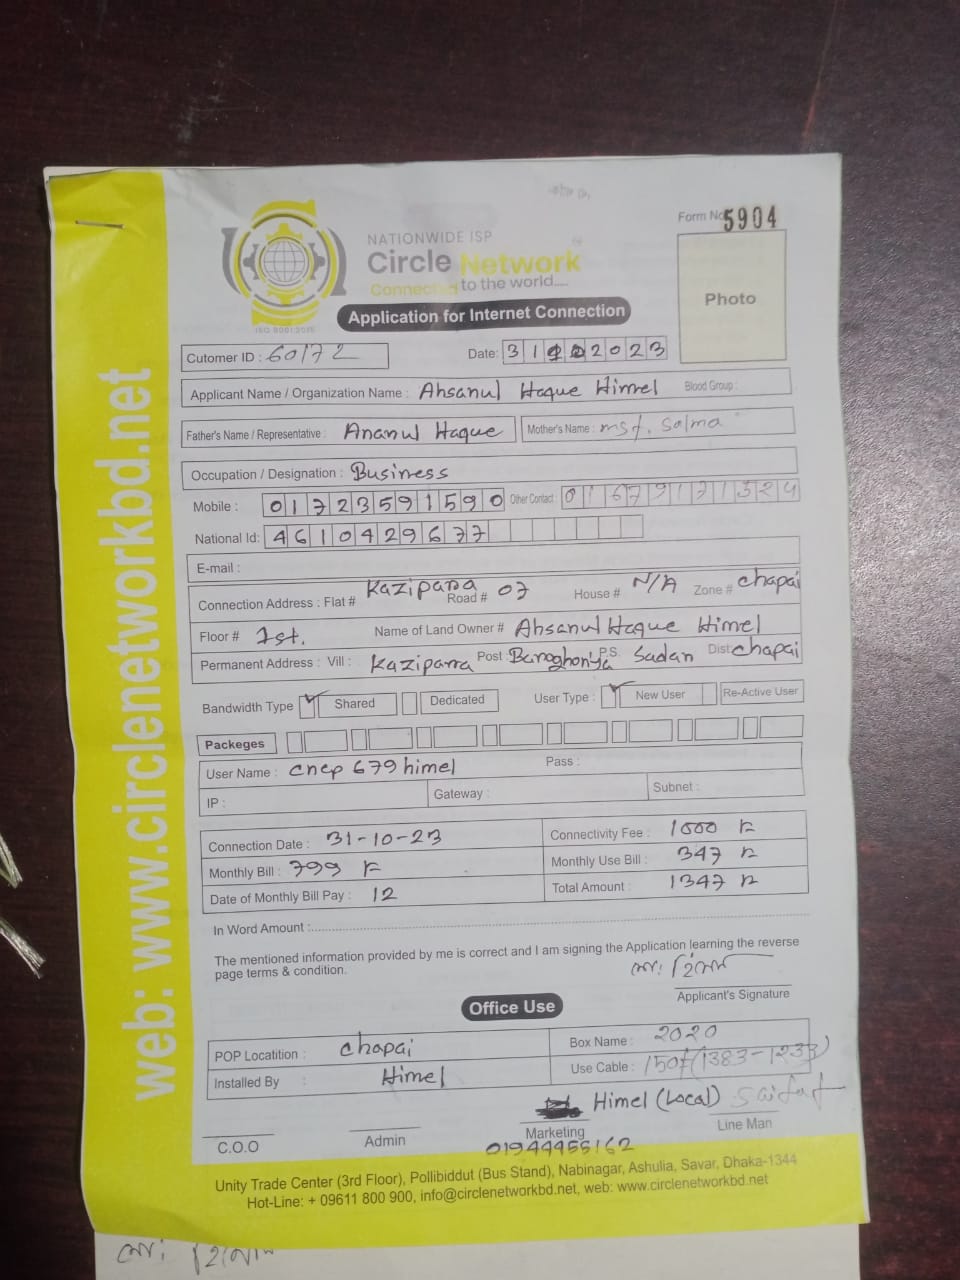 Form No 5904
NATIONWIDE ISP
Circle Network
Connected to the world....
ISO 9001:2015
Application for Internet Connection
Photo
Cutomer ID : 60172
Date: 31 2023
Applicant Name / Organization Name : Ahsanul Haque Himel Blood Group :
Father's Name / Representative : Ananul Haque Mother's Name : mst. Salma
Occupation / Designation : Business
Mobile : 01723591590 Other Contact : 01679171324
National Id: 4610429677
E-mail :
Connection Address : Flat # Kazipara Road # 07 House # N/A Zone # chapai
Floor # 1st. Name of Land Owner # Ahsanul Haque Himel
Permanent Address : Vill : Kaziparra Post : Baroghoriya P.S. Sadar Dist chapai
Bandwidth Type Shared Dedicated User Type : New User Re-Active User
Packeges
User Name : cncp 679 himel Pass :
IP : Gateway : Subnet :
Connection Date : 31-10-23 Connectivity Fee : 1000
Monthly Bill : 799 Monthly Use Bill : 347
Date of Monthly Bill Pay : 12 Total Amount : 1347
In Word Amount :
The mentioned information provided by me is correct and I am signing the Application learning the reverse
page terms & condition.
মো: হিমেল
Applicant's Signature
Office Use
POP Locatition : chapai Box Name : 2020
Installed By : Himel Use Cable : 150f (1383-1233)
Himel (Local)
C.O.O Admin Marketing Line Man
01944455162
Unity Trade Center (3rd Floor), Pollibiddut (Bus Stand), Nabinagar, Ashulia, Savar, Dhaka-1344
Hot-Line: + 09611 800 900, info@circlenetworkbd.net, web: www.circlenetworkbd.net
web: www.circlenetworkbd.net
মো: হিমেল